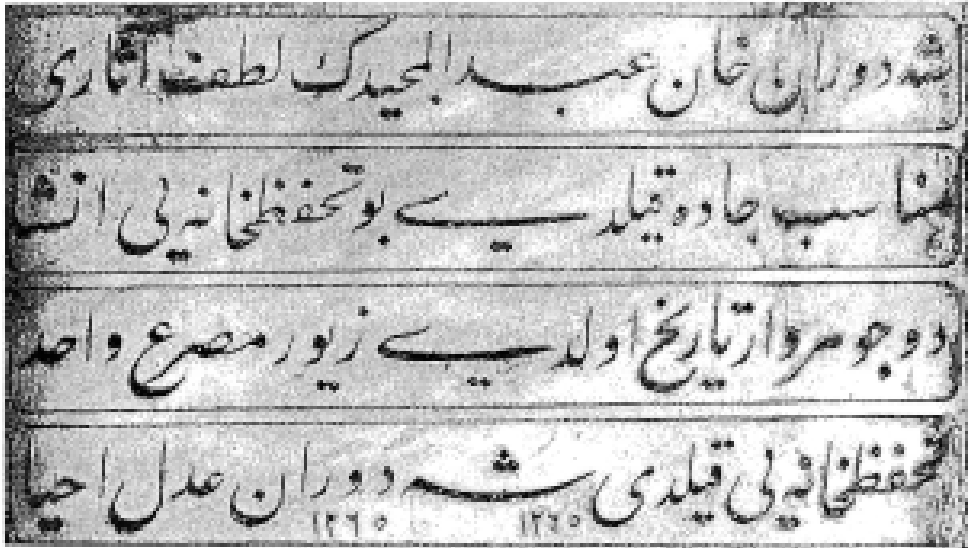 شه دوران خان عبد المجيدك لطف آثاری
مناسب جاده قيلدی بو تحفظخانه یی انشا
دو جوهروار تاريخ اولدی زيور مصرع واحد
تحفظخانه یی قيلدی شه دوران عدل احيا
١٢٦٥ ١٢٦٥